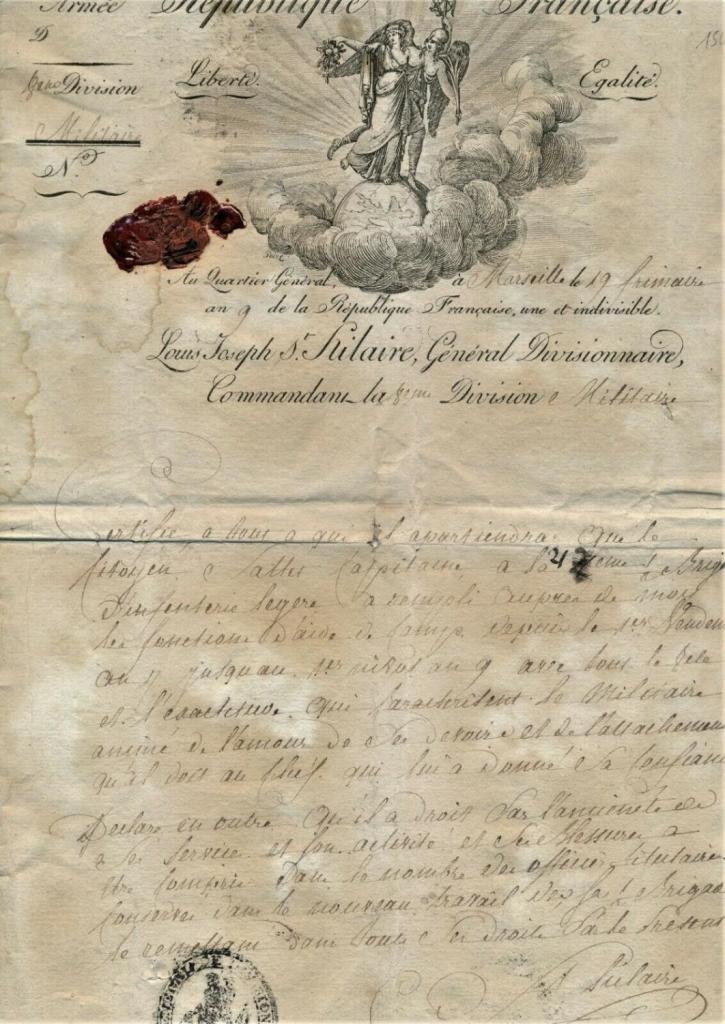 Armée République Française.
D
8eme Division Liberté. Egalité.
Militaire
N.o
Au Quartier Général, à Marseille le 19 frimaire
an 9 de la République Française, une et indivisible.
Louis Joseph St. Hilaire, Général Divisionnaire,
Commandant la 8eme Division Militaire
Certifie a tous a qui il apartiendra que le
Citoyen Capitaine, a la
D'infenterie legere a rempli aupres de moy
les fonctions d'aide de Camp depuis le 1er Vendem
an 7 jusquau 1er nivos an 9 avec tous le Zele
et l'exactitude qui Caracterisent le Militaire
animé de l'amour de Ses devoirs et de l'attachement
qu'il doit au Chef qui lui a donné Sa Confiance
Declare en outre qu'il a droit par l'ancienneté de
Ses Service et son activité et Ses Blessures a
être Compris dans le nombre des officiers titulaires
Conservés dans le nouveau travail des Brigad
le remettant dans tous Ses droits par le present
St Hilaire